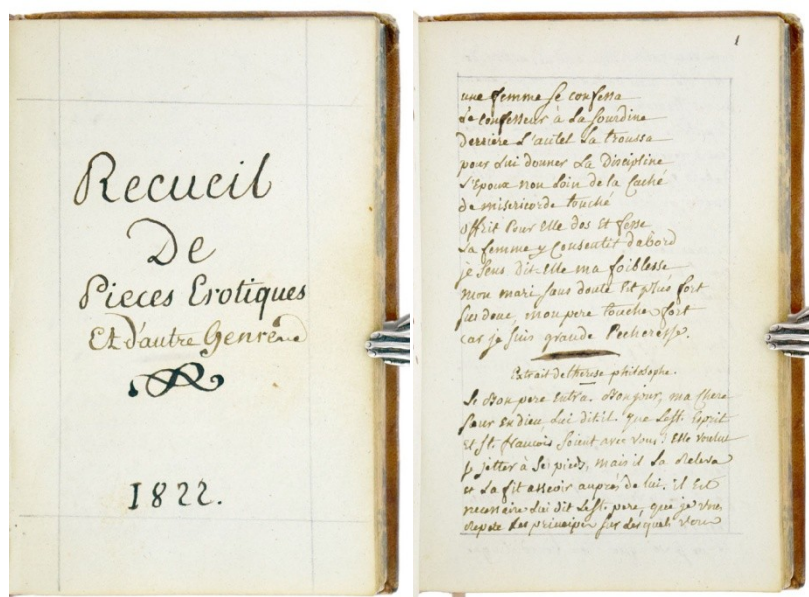 Recueil
De
Pieces Erotiques
Et d'autre Genre
1822.
1
une femme se confessa
le confesseur à La sourdine
derriere L'autel La troussa
pour Lui donner La Discipline
L'Epoux non Loin de la Caché
de misericorde touché
offrit Pour Elle dos Et fesse
La femme y Consentit d'abord
je sens Dit-Elle ma foiblesse
mon mari sans doute Est plus fort
sus donc, mon pere touchez fort
car je suis grande Pecheresse.
Extrait de therese philosophe.
Le Bon pere Entra. Bonjour, ma Chere
sœur En dieu, Lui dit il. Que Le St. Esprit
Et St. francois soient avec vous! Elle voulut
se jetter à Ses pieds, mais il La Releva
et La fit asseoir auprès de lui. il Est
necessaire Lui dit Le St. pere, que je vous
repete Les principes sur Lesquels vous